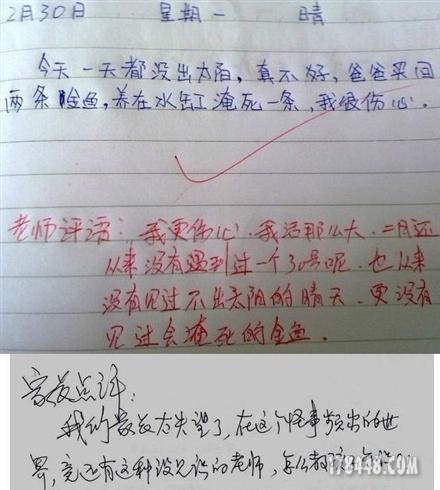 2月30日 星期一 晴
今天一天都没出太阳，真不好，爸爸买回
两条金鱼，养在水缸淹死一条，我很伤心．
老师评语：我更伤心．我活那么大．二月还
从来没有遇到过一个30号呢．也从来
没有见过不出太阳的晴天．更没有
见过会淹死的金鱼．
家长点评：
我的最最太失望了，在这个怪事频出的世
界，竟还有这种没见识的老师，怎么教
178448.COM